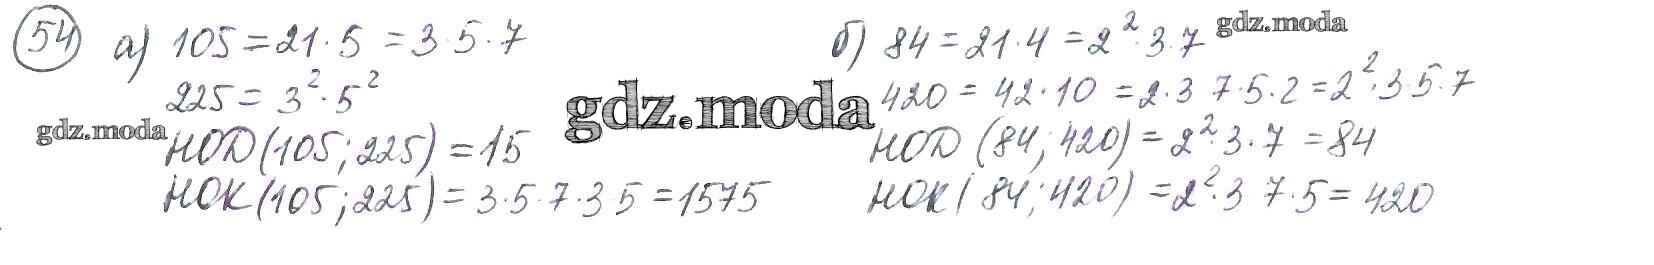 54 а) 105 = 21 · 5 = 3 · 5 · 7
225 = 3² · 5²
НОD (105; 225) = 15
НОК (105; 225) = 3 · 5 · 7 · 3 5 = 1575
б) 84 = 21 · 4 = 2² · 3 · 7
420 = 42 · 10 = 2 · 3 7 · 5 · 2 = 2² · 3 · 5 · 7
НОD (84; 420) = 2² · 3 · 7 = 84
НОК (84; 420) = 2² · 3 7 · 5 = 420
gdz.moda
gdz.moda
gdz.moda